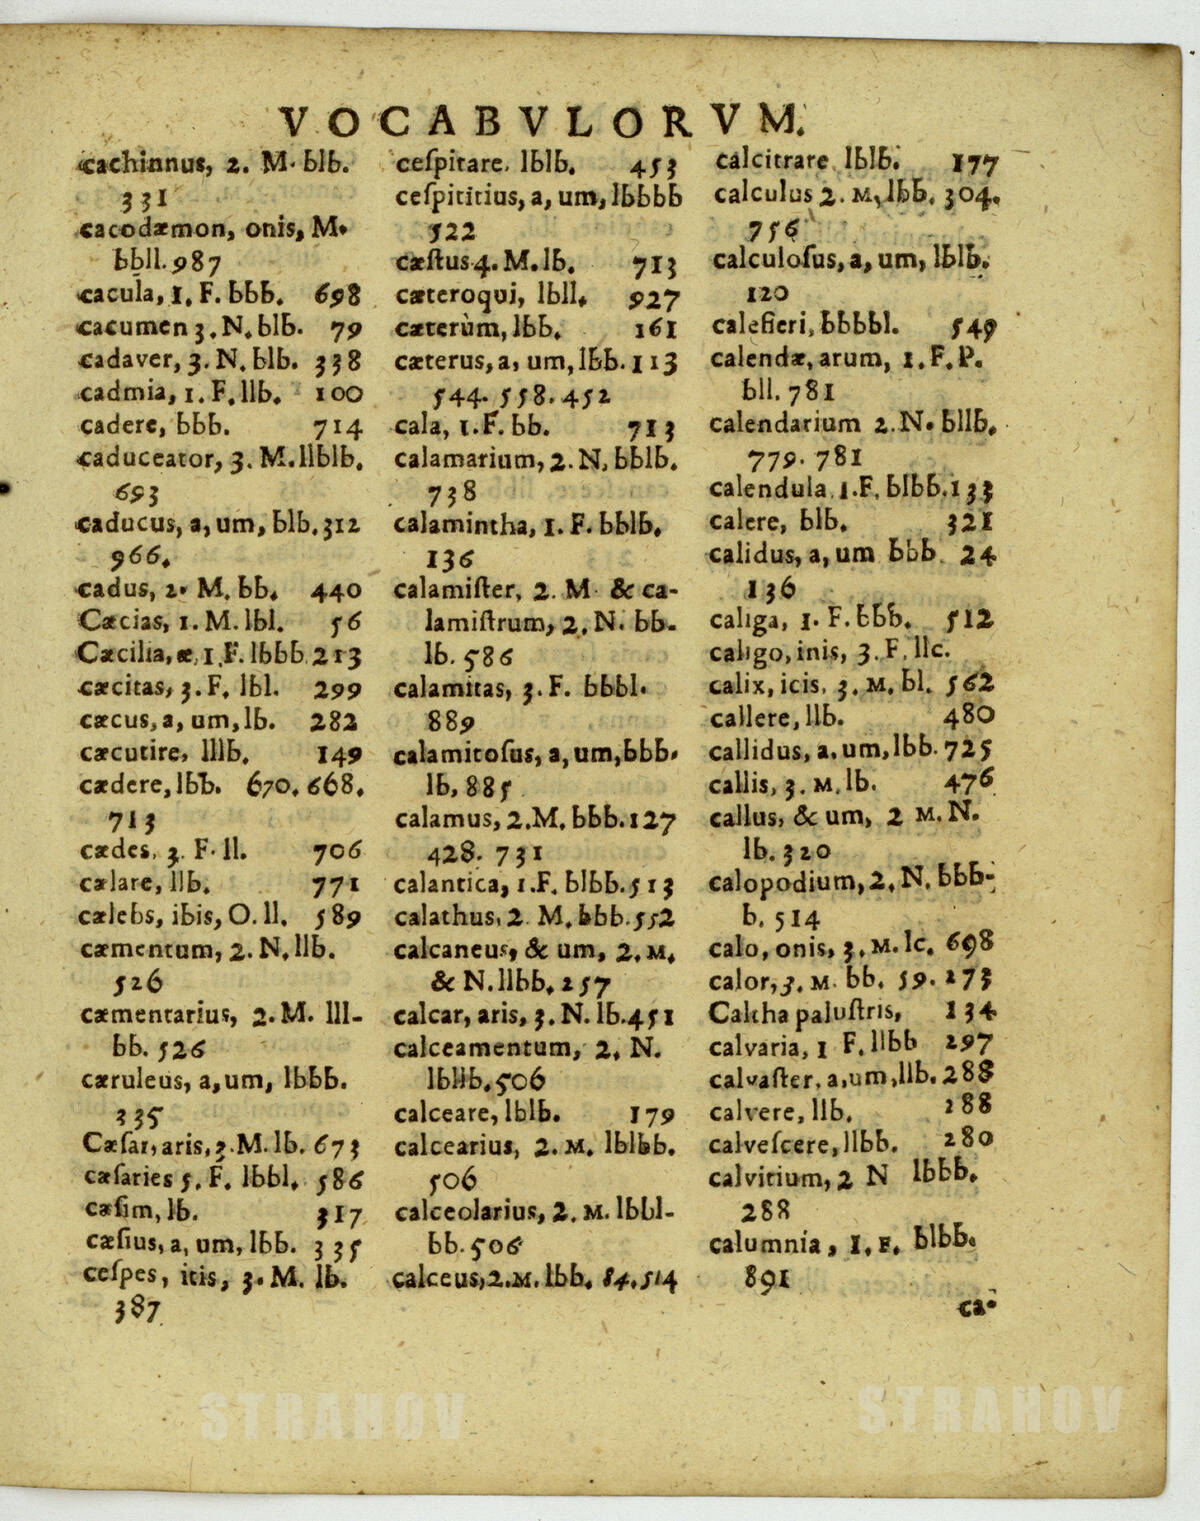 VOCABVLORVM.
cachinnus, 2. M. blb.
331
cacodæmon, onis, M.
bbll. 987
cacula, 1. F. bbb. 698
cacumen 3. N. blb. 79
cadaver, 3. N. blb. 338
cadmia, 1. F. llb. 100
cadere, bbb. 714
caduceator, 3. M. llblb.
693
caducus, a, um, blb. 312
966.
cadus, 2. M. bb. 440
Cæcias, 1. M. lbl. 56
Cæcilia, æ, 1. F. lbbb 213
cæcitas, 3. F. lbl. 299
cæcus, a, um, lb. 282
cæcutire, lllb. 149
cædere, lbb. 670. 668.
713
cædes, 3. F. ll. 706
cælare, llb. 771
cælebs, ibis, O. ll. 589
cæmentum, 2. N. llb.
526
cæmentarius, 2. M. lll-
bb. 526
cæruleus, a, um, lbbb.
335
Cæſar, aris, 3. M. lb. 673
cæſaries 5. F. lbbl. 586
cæſim, lb. 317
cæſius, a, um, lbb. 335
ceſpes, itis, 3. M. lb.
387
ceſpitare. lblb. 453
ceſpititius, a, um, lbbbb
522
cæſtus 4. M. lb. 713
cæteroqui, lbll. 927
cæterùm, lbb. 161
cæterus, a, um, lbb. 113
544. 558. 452
cala, 1. F. bb. 713
calamarium, 2. N. bblb.
738
calamintha, 1. F. bblb.
136
calamiſter, 2. M & ca-
lamiſtrum, 2. N. bb-
lb. 586
calamitas, 3. F. bbbl.
889
calamitoſus, a, um, bbb.
lb. 885
calamus, 2. M. bbb. 127
428. 731
calantica, 1. F. blbb. 513
calathus, 2. M. bbb. 552
calcaneus, & um, 2. M.
& N. llbb. 257
calcar, aris, 3. N. lb. 451
calceamentum, 2. N.
lbllb. 506
calceare, lblb. 179
calcearius, 2. M. lblbb.
506
calceolarius, 2. M. lbbl-
bb. 506
calceus, 2. M. lbb. 84. 514
calcitrare lblb. 177
calculus 2. M. lbb. 304.
756
calculoſus, a, um, lblb.
120
calefieri, bbbbl. 549
calendæ, arum, 1. F. P.
bll. 781
calendarium 2. N. bllb.
779. 781
calendula 1. F. blbb. 133
calere, blb. 321
calidus, a, um bbb. 24
136
caliga, 1. F. bbb. 512
caligo, inis, 3. F. llc.
calix, icis, 3. M. bl. 562
callere, llb. 480
callidus, a, um, lbb. 725
callis, 3. M. lb. 476
callus, & um, 2 M. N.
lb. 320
calopodium, 2. N. bbb-
b. 514
calo, onis, 3. M. lc. 698
calor, 3. M. bb. 59. 273
Caltha paluſtris, 134
calvaria, 1 F. llbb 297
calvaſter, a, um, llb. 288
calvere, llb. 288
calveſcere, llbb. 280
calvitium, 2 N lbbb.
288
calumnia, 1. F. blbb.
891
ca-
STRAHOV STRAHOV